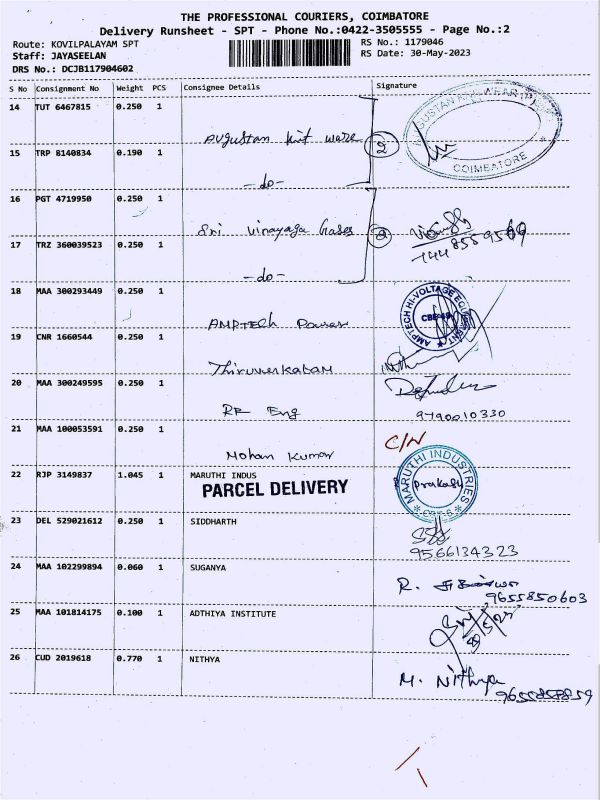 THE PROFESSIONAL COURIERS, COIMBATORE
Delivery Runsheet - SPT - Phone No.:0422-3505555 - Page No.:2
Route: KOVILPALAYAM SPT
RS No.: 1179046
Staff: JAYASEELAN
RS Date: 30-May-2023
DRS No.: DCJB117904602
S No Consignment No Weight PCS Consignee Details Signature
14 TUT 6467815 0.250 1
Augustan knit ware
2
COIMBATORE
15 TRP 8140834 0.190 1
-do-
16 PGT 4719950 0.250 1
Sri Vinayaga Gases
2
17 TRZ 360039523 0.250 1
-do-
18 MAA 300293449 0.250 1
AMPTECH Power
AMPTECH HI-VOLTAGE EQUIPMENT
CBE-49
19 CNR 1660544 0.250 1
Thiruvenkatam
20 MAA 300249595 0.250 1
RR Eng
9790010330
21 MAA 100053591 0.250 1
Mohan Kumar
C/N
22 RJP 3149837 1.045 1 MARUTHI INDUS
PARCEL DELIVERY
MARUTHI INDUSTRIES
Prakash
23 DEL 529021612 0.250 1 SIDDHARTH
9566134323
24 MAA 102299894 0.060 1 SUGANYA
R.
9655850603
25 MAA 101814175 0.100 1 ADTHIYA INSTITUTE
26 CUD 2019618 0.770 1 NITHYA
M. Nithya